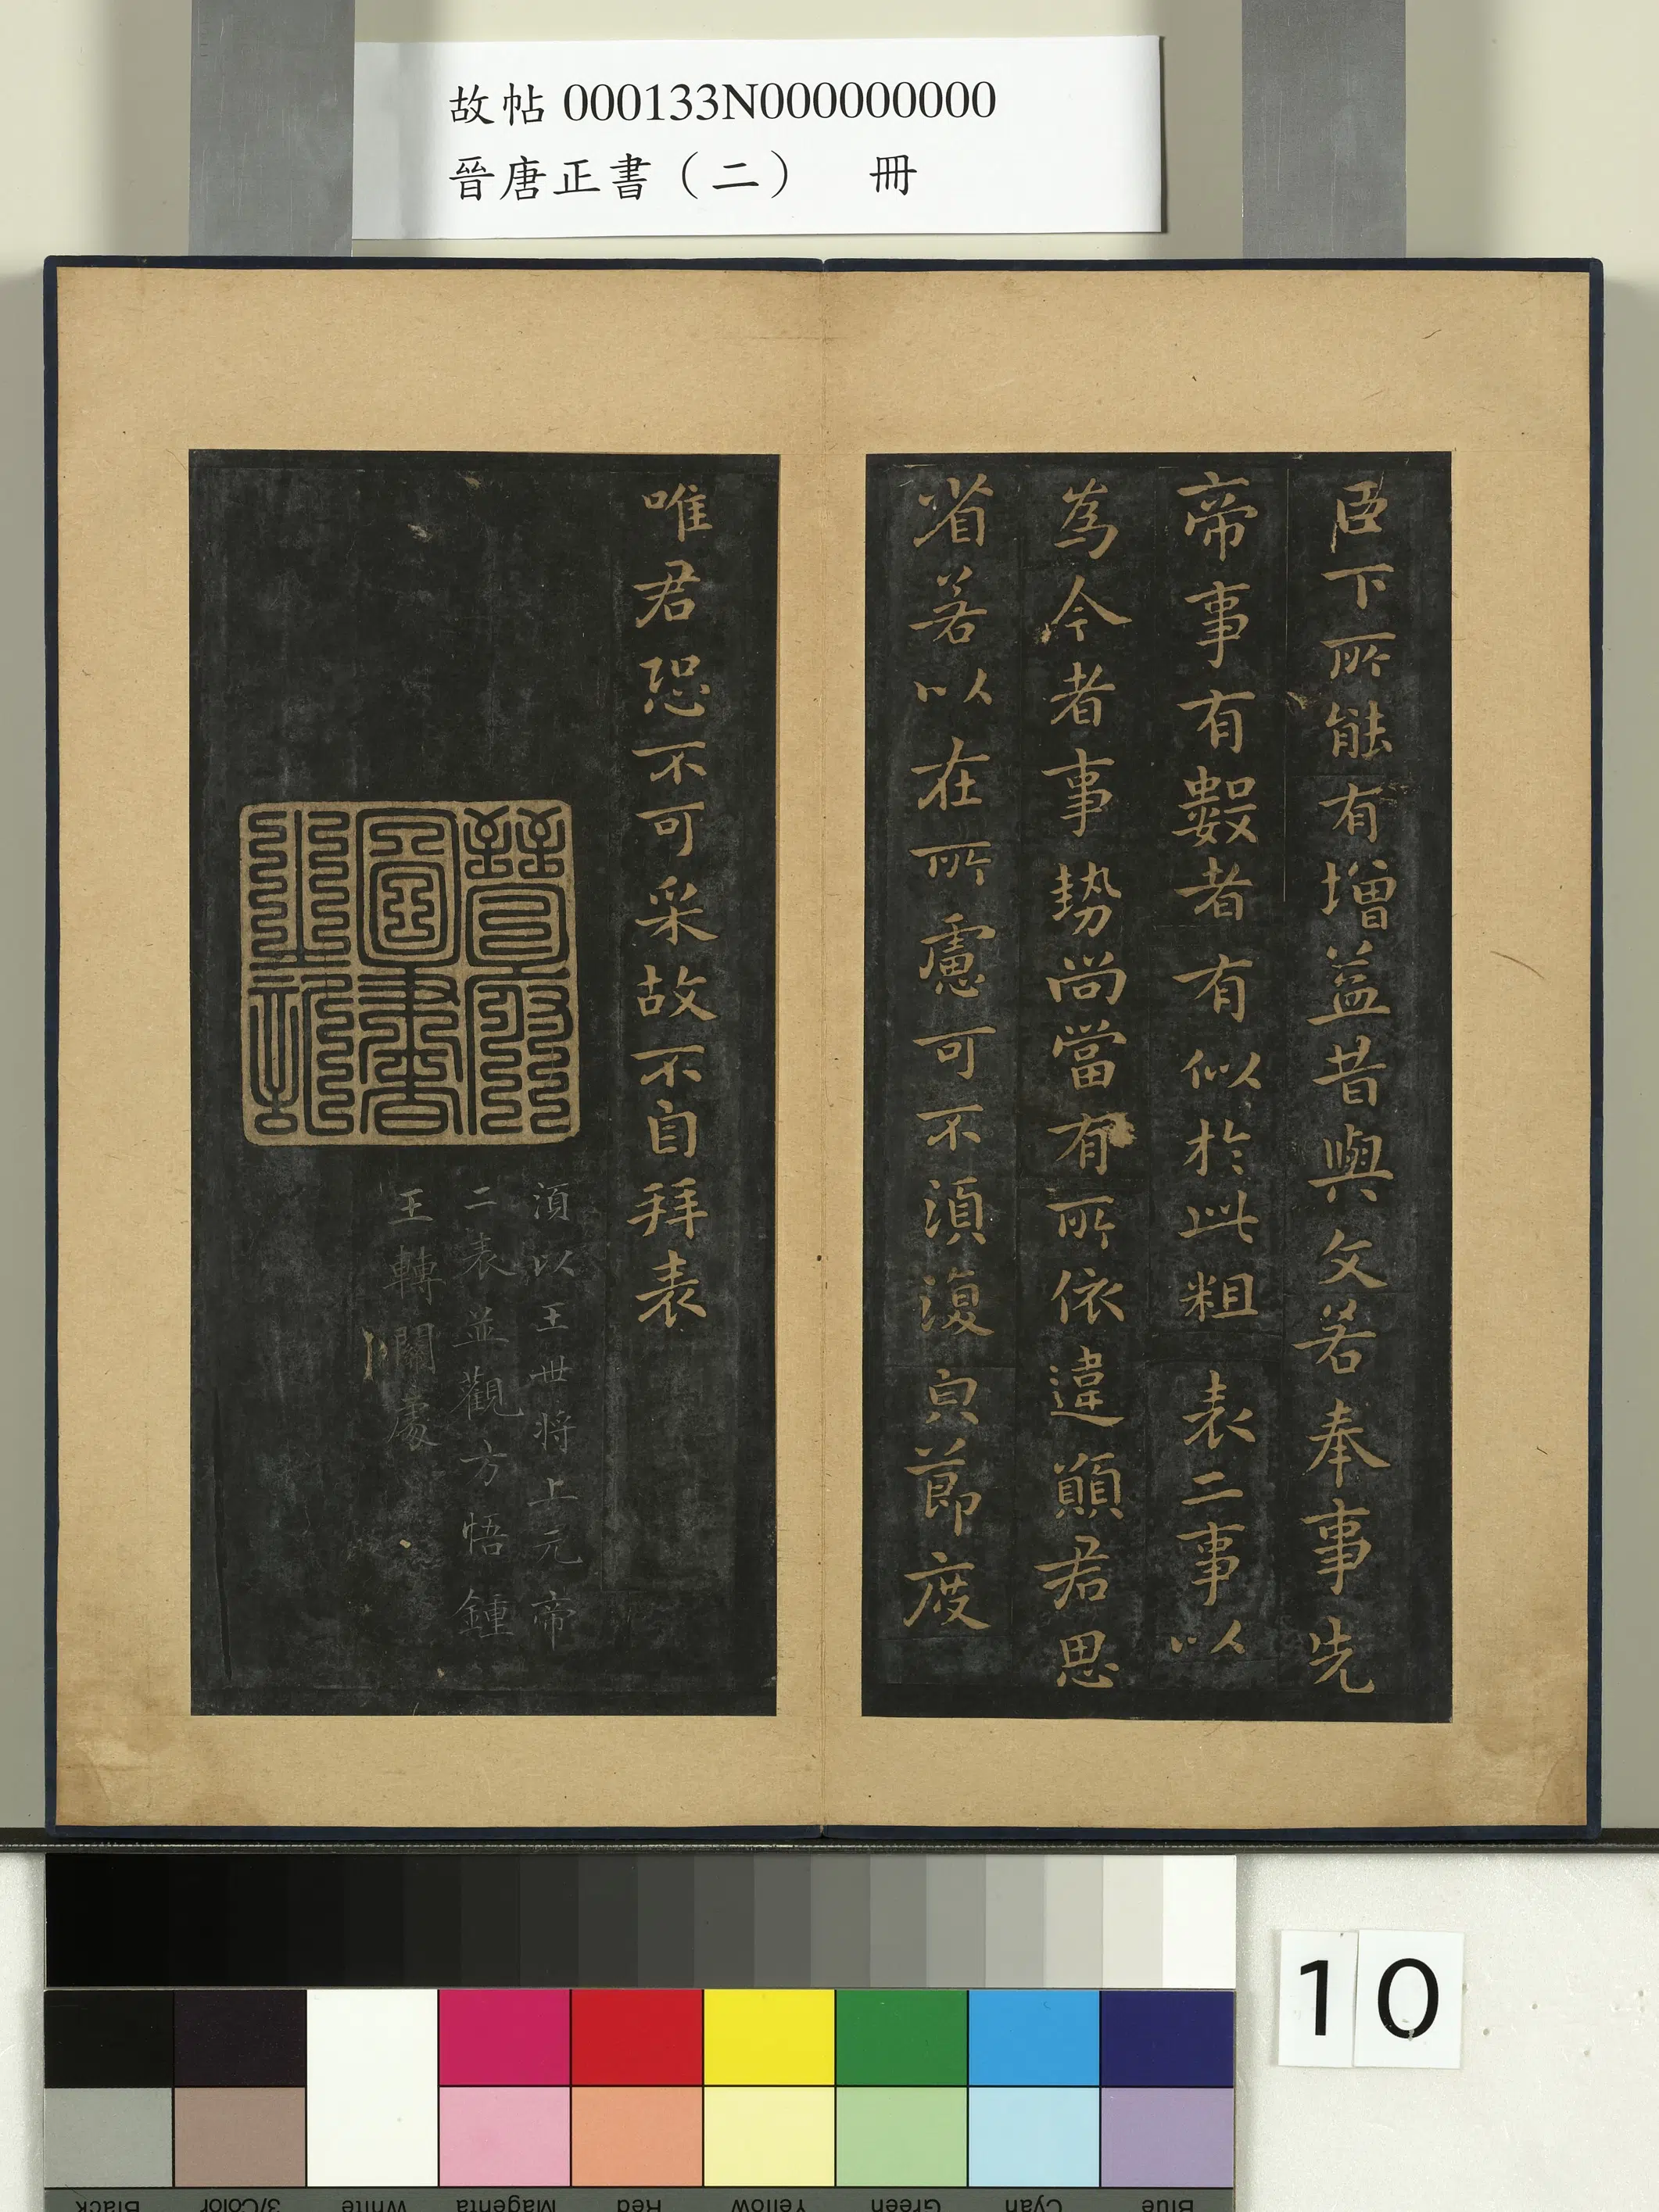 故帖 000133N000000000
晉唐正書（二） 冊
臣下所能有增益昔與文若奉事先
帝事有數者有似於此粗表二事以
為今者事勢尚當有所依違願君思
省若以在所慮可不須復皃節度
唯君恐不可采故不自拜表
晉府圖書
須以王世將上元帝
二表並觀方悟鍾
王轉關處
10
Black
3/Color
White
Magenta
Red
Yellow
Green
Cyan
Blue